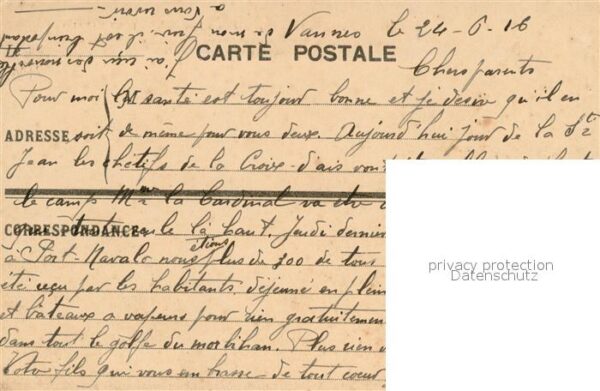 Vannes le 24-6-16
CARTE POSTALE
Chers parents
Pour moi la santé est toujour bonne et je desire qu'il en
ADRESSE soit de même pour vous deux. Aujourd'hui jour de la St
Jean les chetifs de la Croix-d'ais vont
le camp Mme la Cardinal va etre
CORRESPONDANCE
seule la haut. Jeudi dernier
à Port-Navalo nous etions plus de 300 de tous
été reçu par les habitants. déjeuné en plein
et bateaux a vapeurs pour rien gratuitement
dans tout le golfe du morbihan. Plus rien
Votre fils qui vous embrasse de tout coeur
privacy protection
Datenschutz